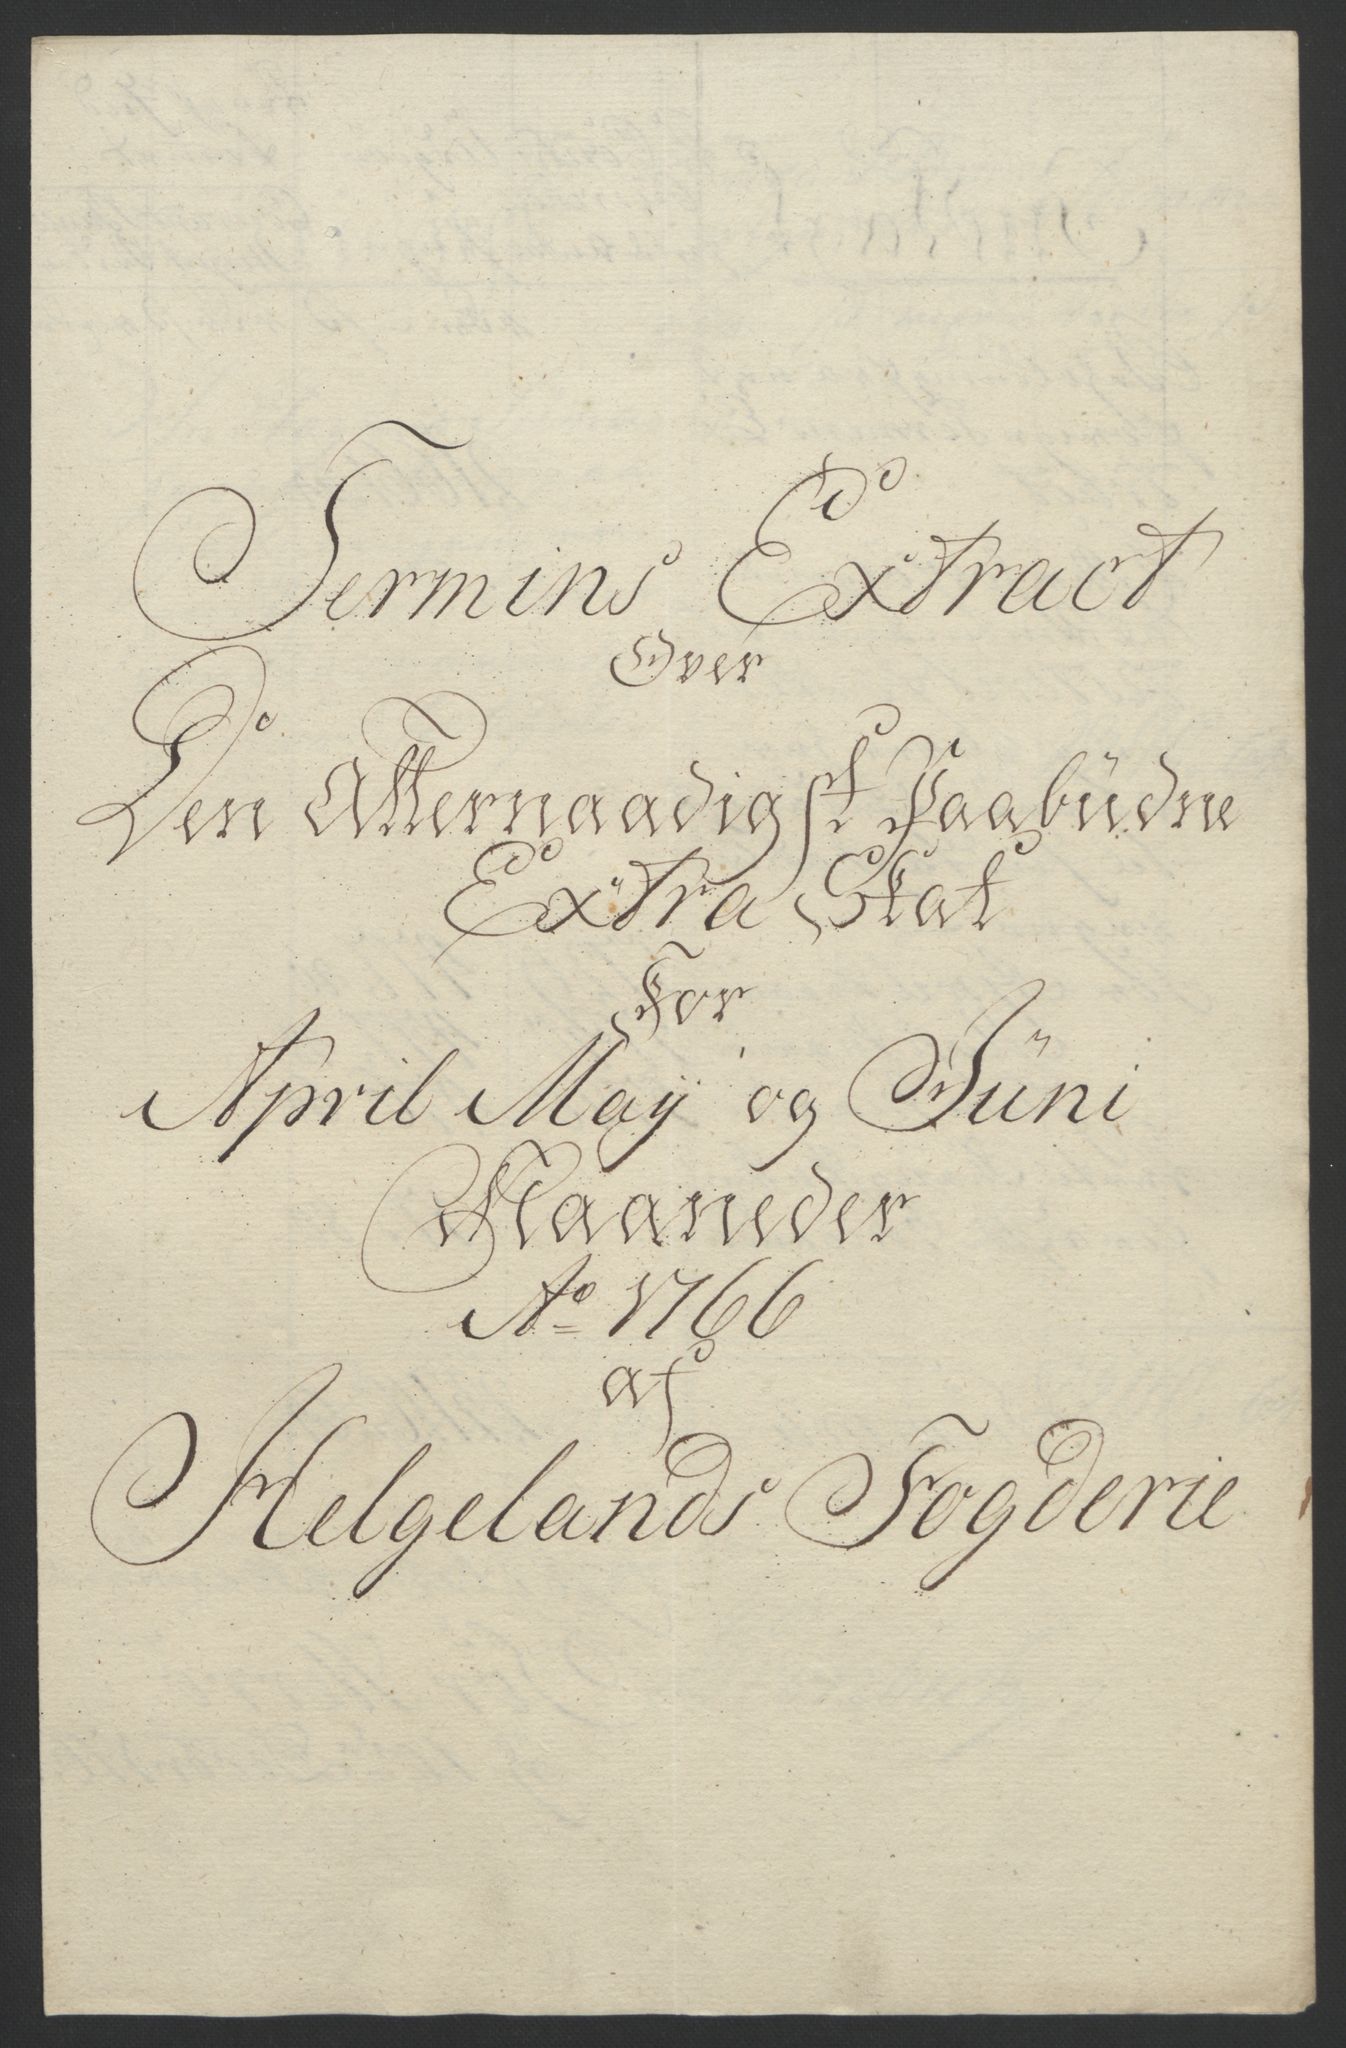 Termins Extract
Over
Den Allernaadigst Paabüdne
Extra Skat
For
April Maÿ og Jüni
Maaneder
Ao 1766
af
Helgelands Fogderie